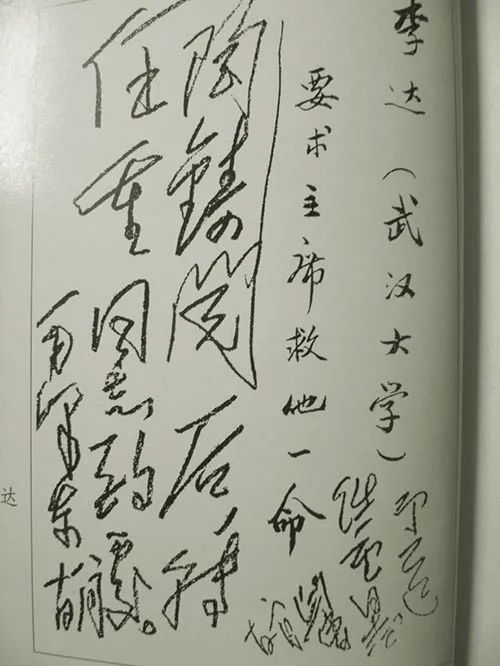 李达（武汉大学）
要求主席救他一命
陶铸阅后，转
任重同志酌处。
毛泽东
达